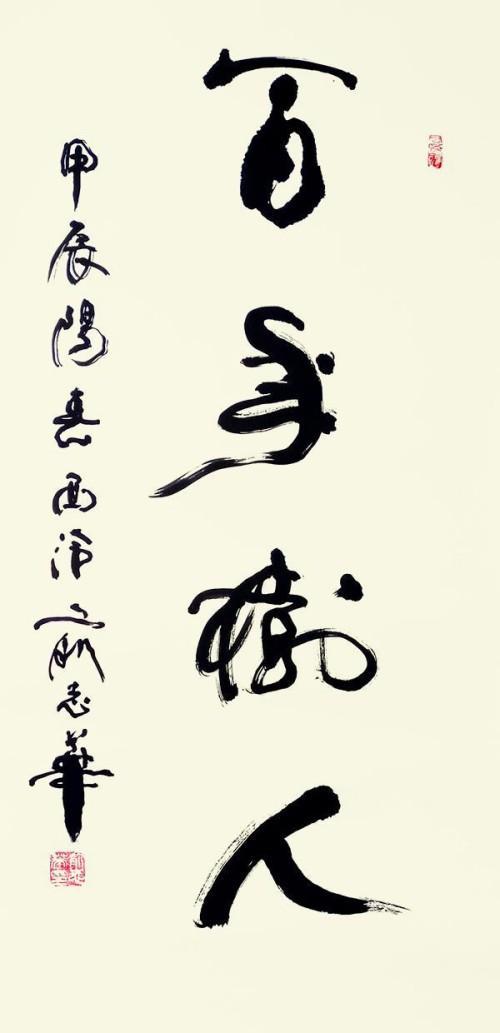 百年樹人
甲辰陽春西泠志華